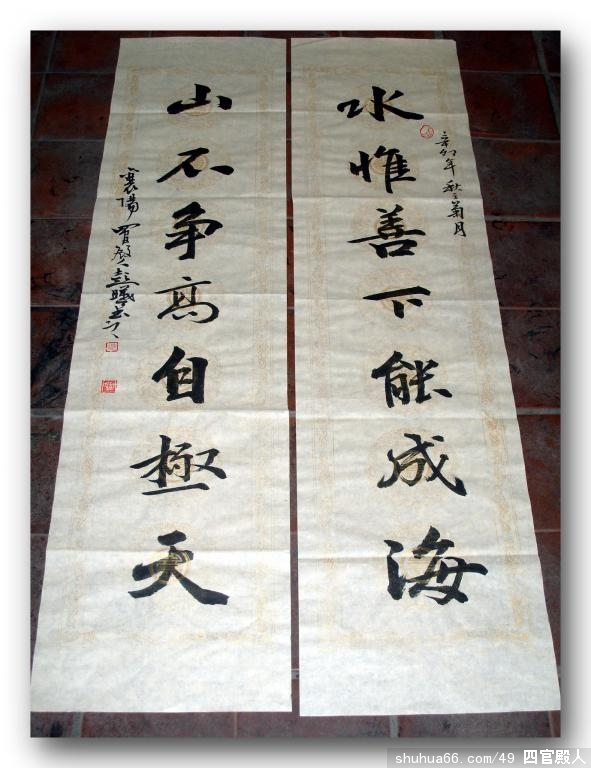 水惟善下能成海
辛卯年秋菊月
山不争高自極天
襄陽
shuhua66.com/49 四官殿人